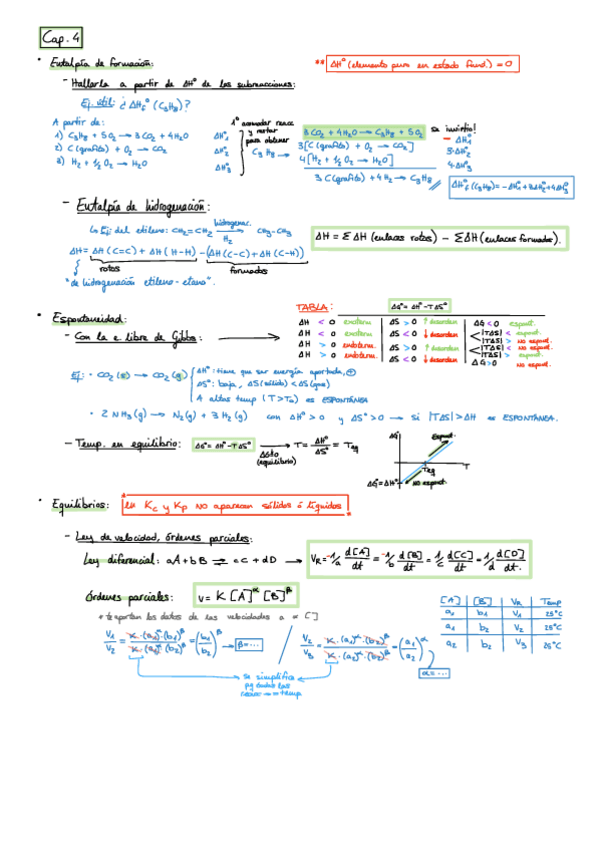 Cap. 4
• Entalpía de formación:
** ΔHº (elemento puro en estado fund.) = 0
- Hallarla a partir de ΔHº de las subreacciones:
Ej. útil: ¿ΔHfº (C3H8)?
A partir de:
1) C3H8 + 5O2 → 3CO2 + 4H2O ΔH1º
2) C (grafito) + O2 → CO2 ΔH2º
3) H2 + ½ O2 → H2O ΔH3º
1º acomodar reacc
y restar
para obtener
C3H8 →
3CO2 + 4H2O → C3H8 + 5O2 se invirtió!
- ΔH1º
3[C (grafito) + O2 → CO2] 3·ΔH2º
4[H2 + ½ O2 → H2O] 4·ΔH3º
3C (grafito) + 4H2 → C3H8 // ΔHfº (C3H8) = -ΔH1º + 3ΔH2º + 4ΔH3º
- Entalpía de hidrogenación:
Ej: del etileno: CH2=CH2 hidrogenac. → H2 CH3-CH3
ΔH = ΔH (C=C) + ΔH (H-H) - (ΔH (C-C) + ΔH (C-H))
rotos formados
"de hidrogenación etileno - etano".
ΔH = Σ ΔH (enlaces rotos) - Σ ΔH (enlaces formados).
• Espontaneidad:
- Con la e. libre de Gibbs: →
TABLA: ΔGº = ΔHº - TΔSº
ΔH < 0 exoterm. ΔS > 0 ↑ desorden ΔG < 0 espont.
ΔH < 0 exoterm. ΔS < 0 ↓ desorden |TΔS| < espont. |TΔS| > no espont.
ΔH > 0 endoterm. ΔS > 0 ↑ desorden |TΔS| < no espont. |TΔS| > espont.
ΔH > 0 endoterm. ΔS < 0 ↓ desorden ΔG > 0 no espont.
Ej: • CO2 (s) → CO2 (g)
ΔHº: tiene que ser energía aportada, +
ΔSº: baja, ΔS (sólido) < ΔS (gas)
A altas temp (T > ) es ESPONTÁNEA
• 2NH3 (g) → N2 (g) + 3H2 (g) con ΔHº > 0 y ΔSº > 0 → si |TΔS| > ΔH es ESPONTÁNEA.
- Temp. en equilibrio: ΔGº = ΔHº - TΔSº → ΔG=0 (equilibrio) T = ΔHº/ΔSº = Teq
ΔG
Espont.
Teq
T
ΔGº=ΔHº
No espont
• Equilibrios: En Kc y Kp NO aparecen sólidos ó líquidos
- Ley de velocidad, órdenes parciales:
Ley diferencial: aA + bB ⇌ cC + dD → VR = -1/a d[A]/dt = -1/b d[B]/dt = 1/c d[C]/dt = 1/d d[D]/dt.
Órdenes parciales: v = K [A]^α [B]^β
* te aportan los datos de las velocidades a ≠ []
[A] [B] VR Temp
a1 b1 V1 25ºC
a1 b2 V2 25ºC
a2 b2 V3 25ºC
V1/V2 = K·(a1)^α·(b1)^β / K·(a1)^α·(b2)^β = (b1/b2)^β → β=...
V2/V3 = K·(a1)^α·(b2)^β / K·(a2)^α·(b2)^β = (a1/a2)^α
α=...
se simplifica
pq todas las
reacc → = temp